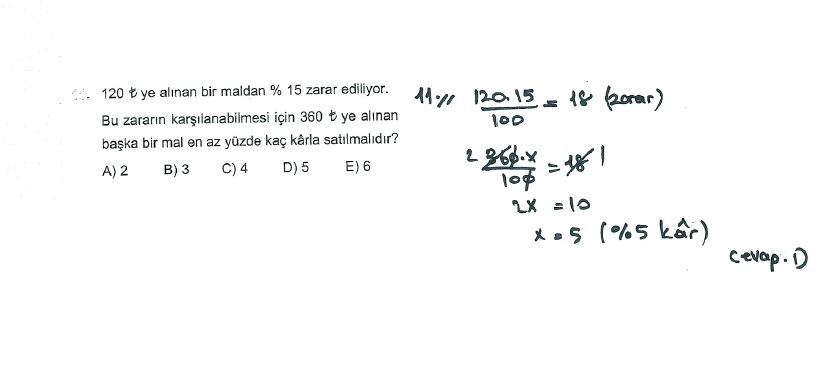 120 ₺ ye alınan bir maldan % 15 zarar ediliyor.
Bu zararın karşılanabilmesi için 360 ₺ ye alınan
başka bir mal en az yüzde kaç kârla satılmalıdır?
A) 2 B) 3 C) 4 D) 5 E) 6
11·// 120.15 = 18 (zarar)
100
2 360.x = 18 1
100
2x = 10
x = 5 (%5 kâr)
Cevap. D